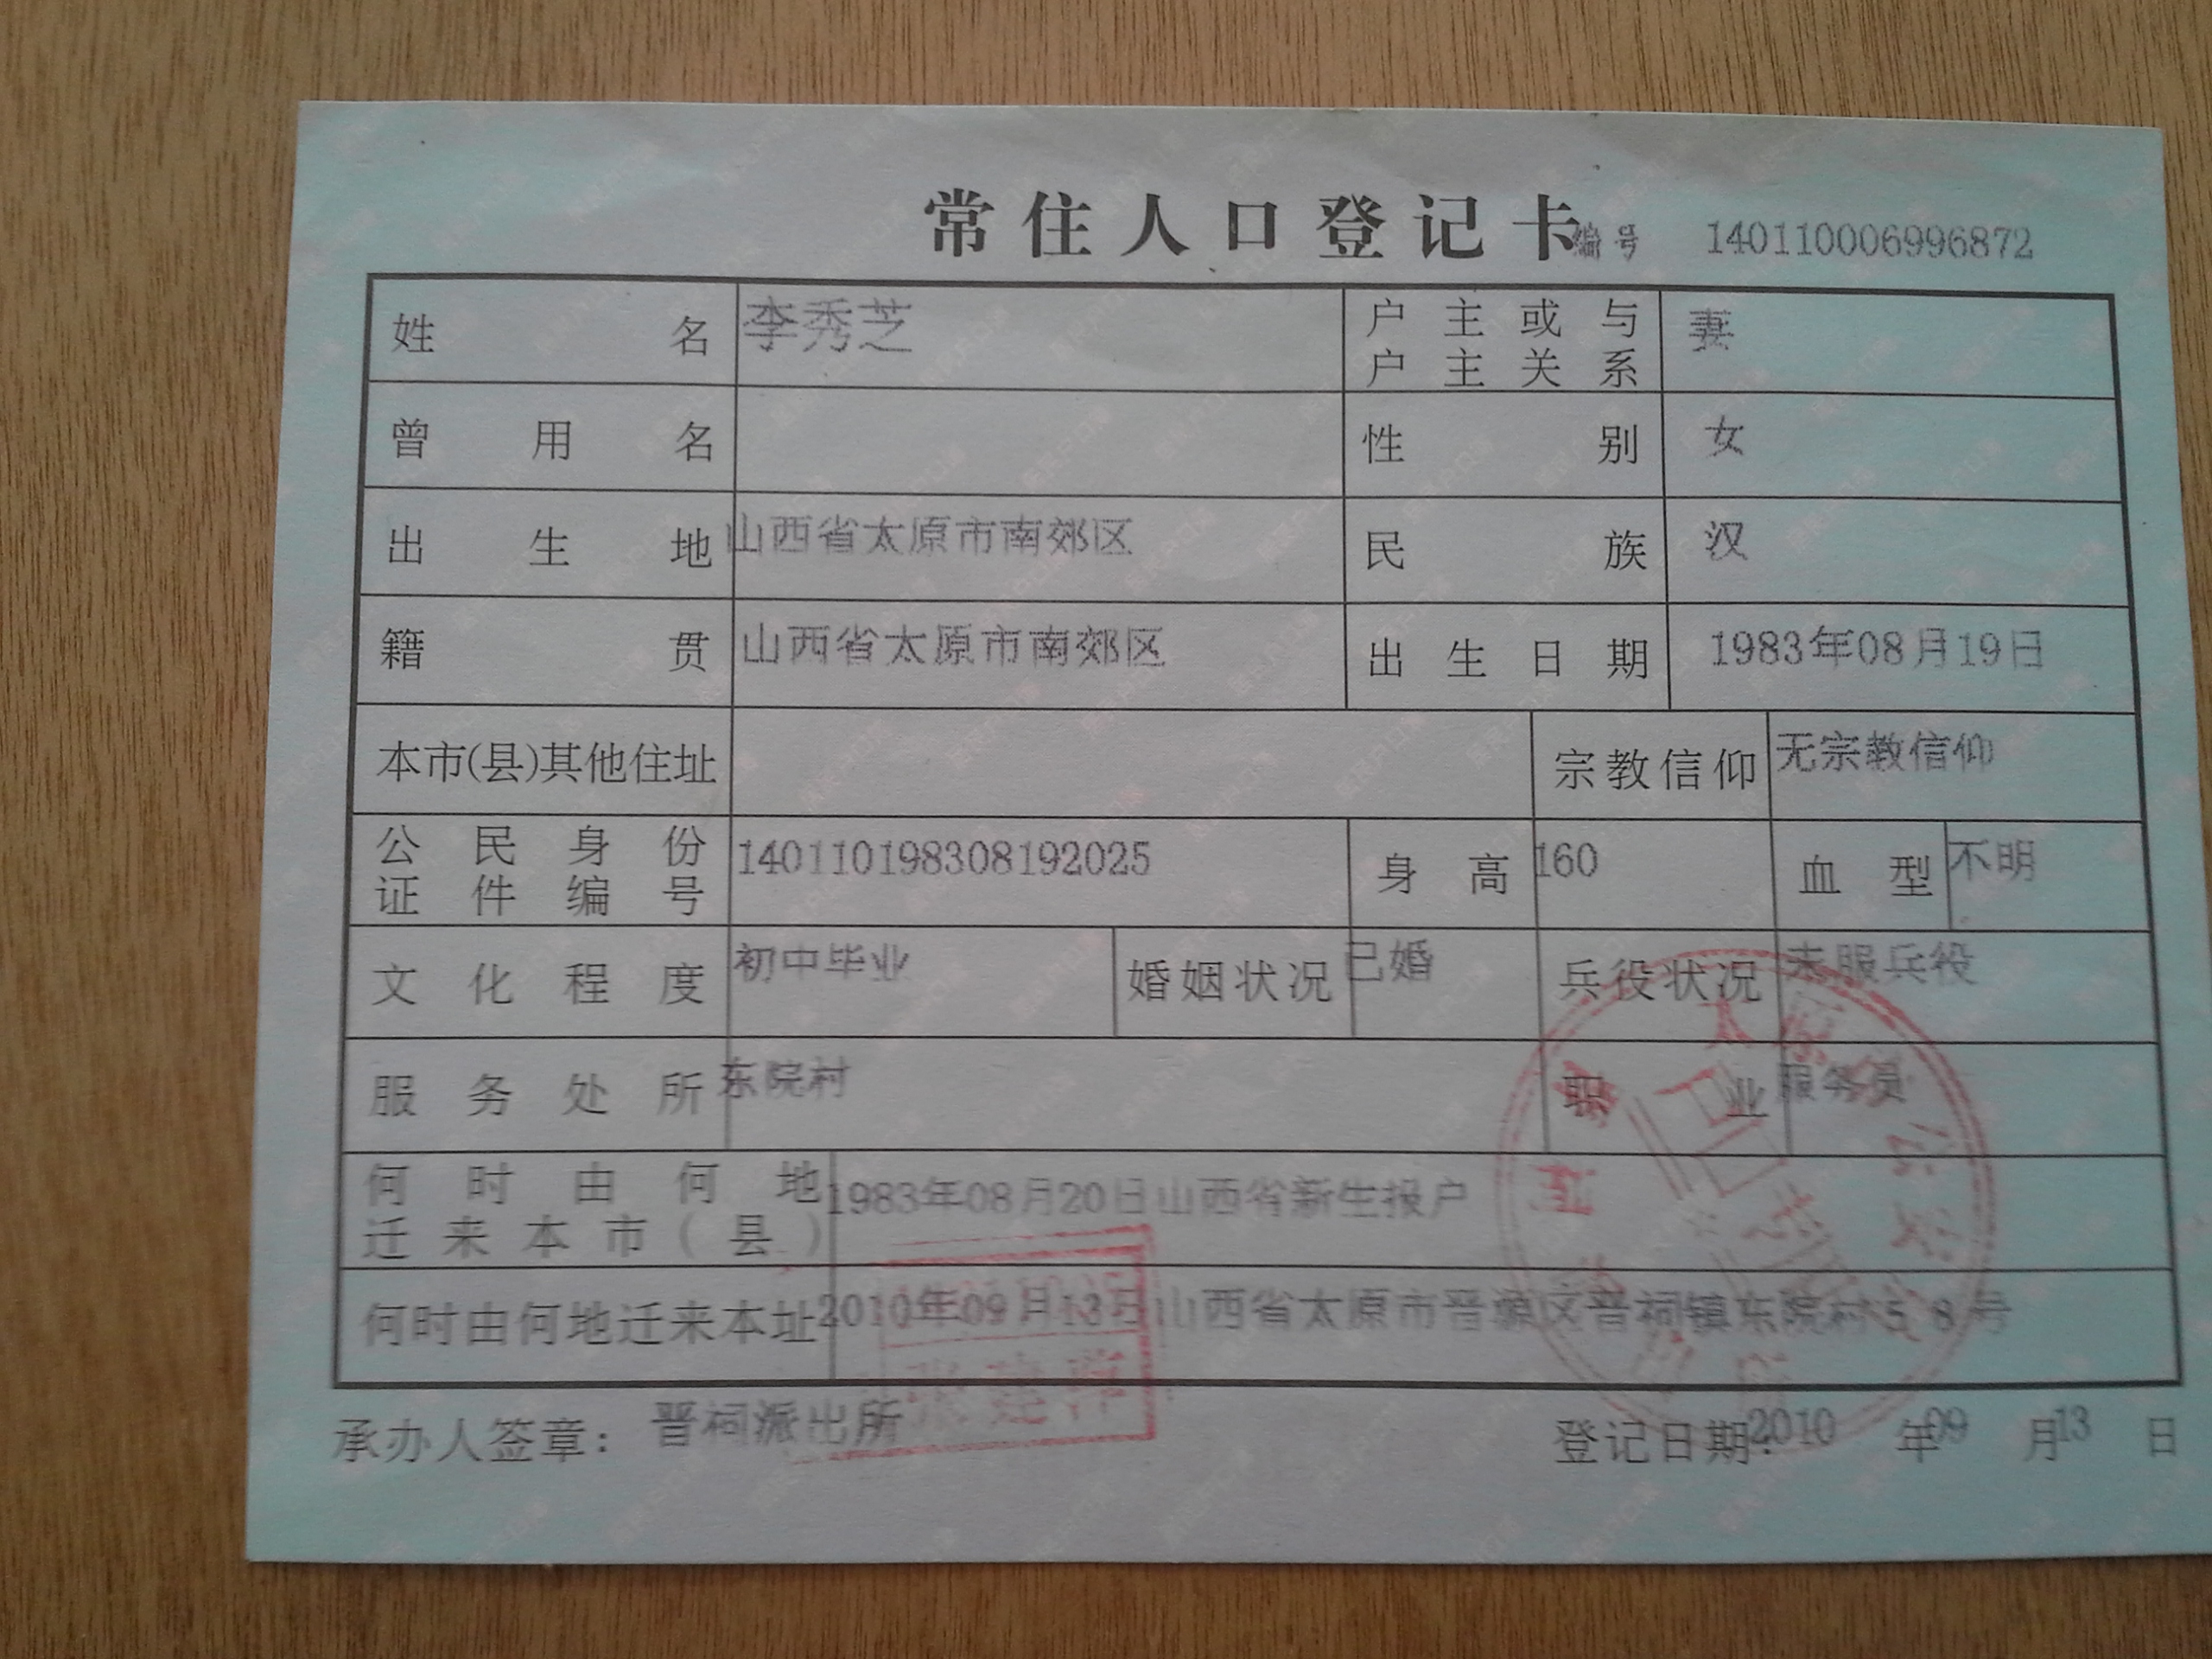 常住人口登记卡 编号 140110006996872
姓名 李秀芝 户主或与户主关系 妻
曾用名 性别 女
出生地 山西省太原市南郊区 民族 汉
籍贯 山西省太原市南郊区 出生日期 1983年08月19日
本市(县)其他住址 宗教信仰 无宗教信仰
公民身份证件编号 140110198308192025 身高 160 血型 不明
文化程度 初中毕业 婚姻状况 已婚 兵役状况 未服兵役
服务处所 东院村 职业 服务员
何时由何地迁来本市(县) 1983年08月20日山西省新生报户
何时由何地迁来本址 2010年09月13日山西省太原市晋源区晋祠镇东院村58号
承办人签章: 晋祠派出所 登记日期: 2010年09月13日